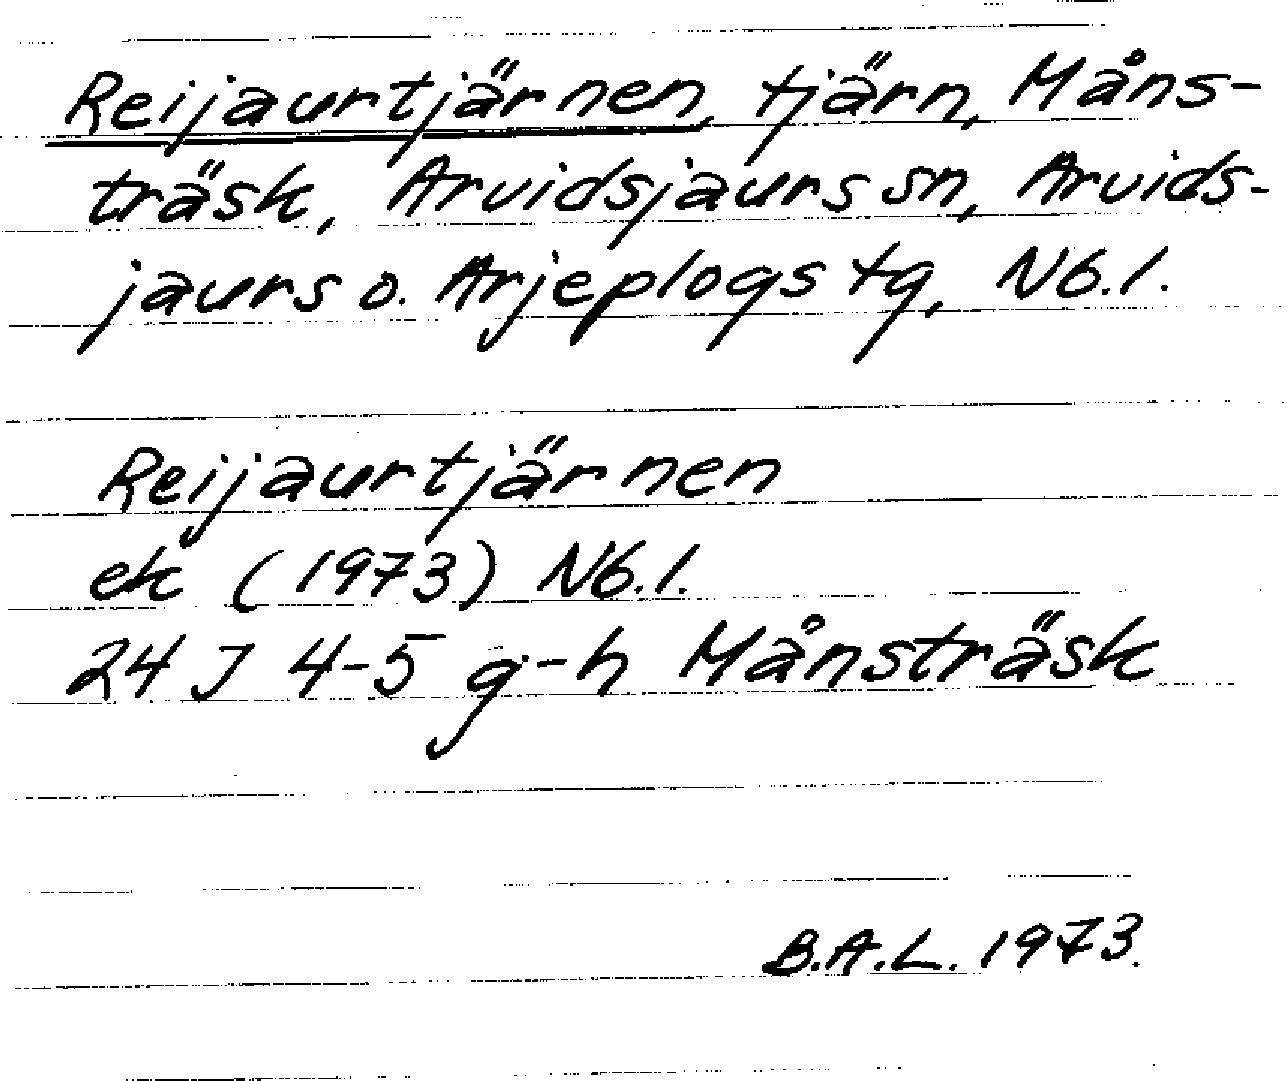 Reijaurtjärnen, tjärn, Måns-
träsk, Arvidsjaurs sn, Arvids-
jaurs o. Arjeplogs tg, Nb.l.
Reijaurtjärnen
ek (1973) Nb.l.
24 J 4-5 g-h Månsträsk
B.A.L. 1973.